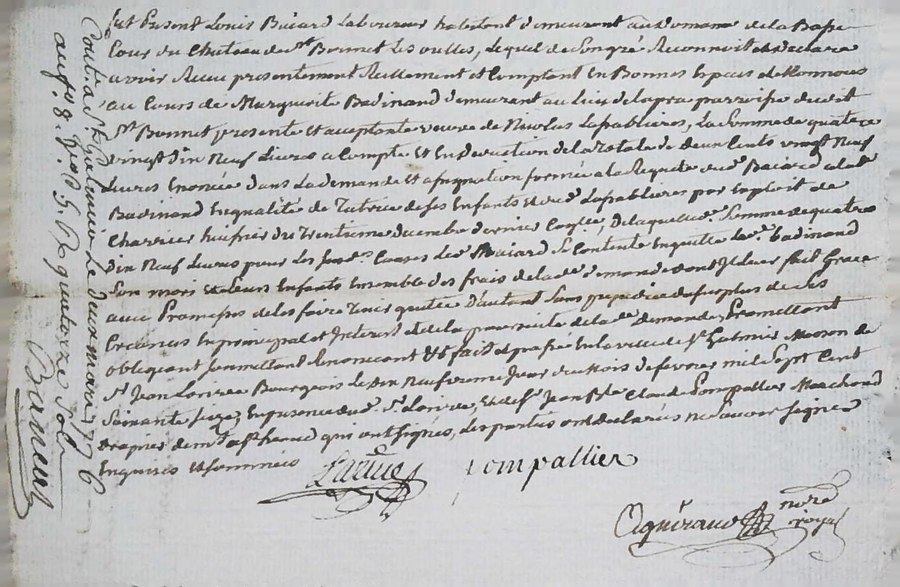 fut Present Louis Buiard Laboureur habitant demeurant au domaine de la Basse
Cour du Chateau de St Bonnet les oulles, Lequel de Son gré Reconnoit et declare
avoir Reçu presentement Reellement et Comptant En Bonnes Especes de Monnoye
au Cours de Marguerite Badinand demeurant au lieu de lapra parroisse dudit
St Bonnet presente et acceptante veuve de Nicolas Lepabliere, La Somme de quatre
vingt Dix Neuf Livres a Compte et En deduction de la totale de deux Cents vingt Neuf
Livres Enoncée dans La demande et assignation formée a la Requete dud Buiard a lade
Badinand En qualité de Tutrice de Ses Enfants et dud Lepabliere par Exploit de
Charrier huissier du trentieme decembre dernier Conlle, De laquelle Somme de quatre
Dix Neuf Livres pour les Causes led Buiard Se Contente En quitte lade badinand
Son mois et leurs Enfants Ensemble des frais de lade demande dont Il leur fait Grace
avec Promesses de les faire tenir quitte d'autant Sans prejudice du Surplus de Ses
Creances En principal et Interet et de la poursuite de lade demande, Promettant
obligeant Soumettant Renonceant &c fait et passé En la ville de St Galmier Maison de
Sr Jean Bourgeois Le Dix Neufvieme Jour du Mois de fevrier mil Sept Cent
Soixante Seize, En presence dud Sr et de Sr Joseph Claude Pompallier Marchand
Drapier demt a St heand qui ont Signés, Les parties ont declarés ne Savoir Signer
Enquises et Sommées
Pompallier
nore
royal
Controllé a St Galmier Le deux mars 1776
quatorze Sols